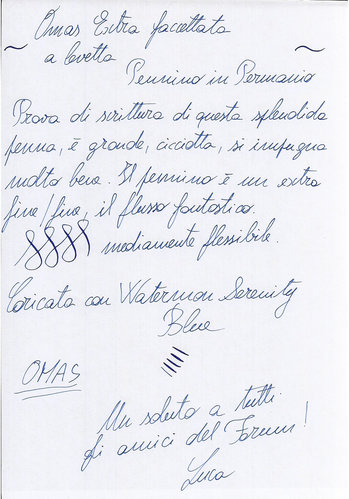 Omas Extra faccettata
a levetta
Pennino in Permanio
Prova di scrittura di questa splendida
penna, è grande, cicciotta, si impugna
molto bene. Il pennino è un extra
fine/fine, il flusso fantastico.
mediamente flessibile.
Caricata con Waterman Serenity
Blue
OMAS
Un saluto a tutti
gli amici del Forum!
Luca